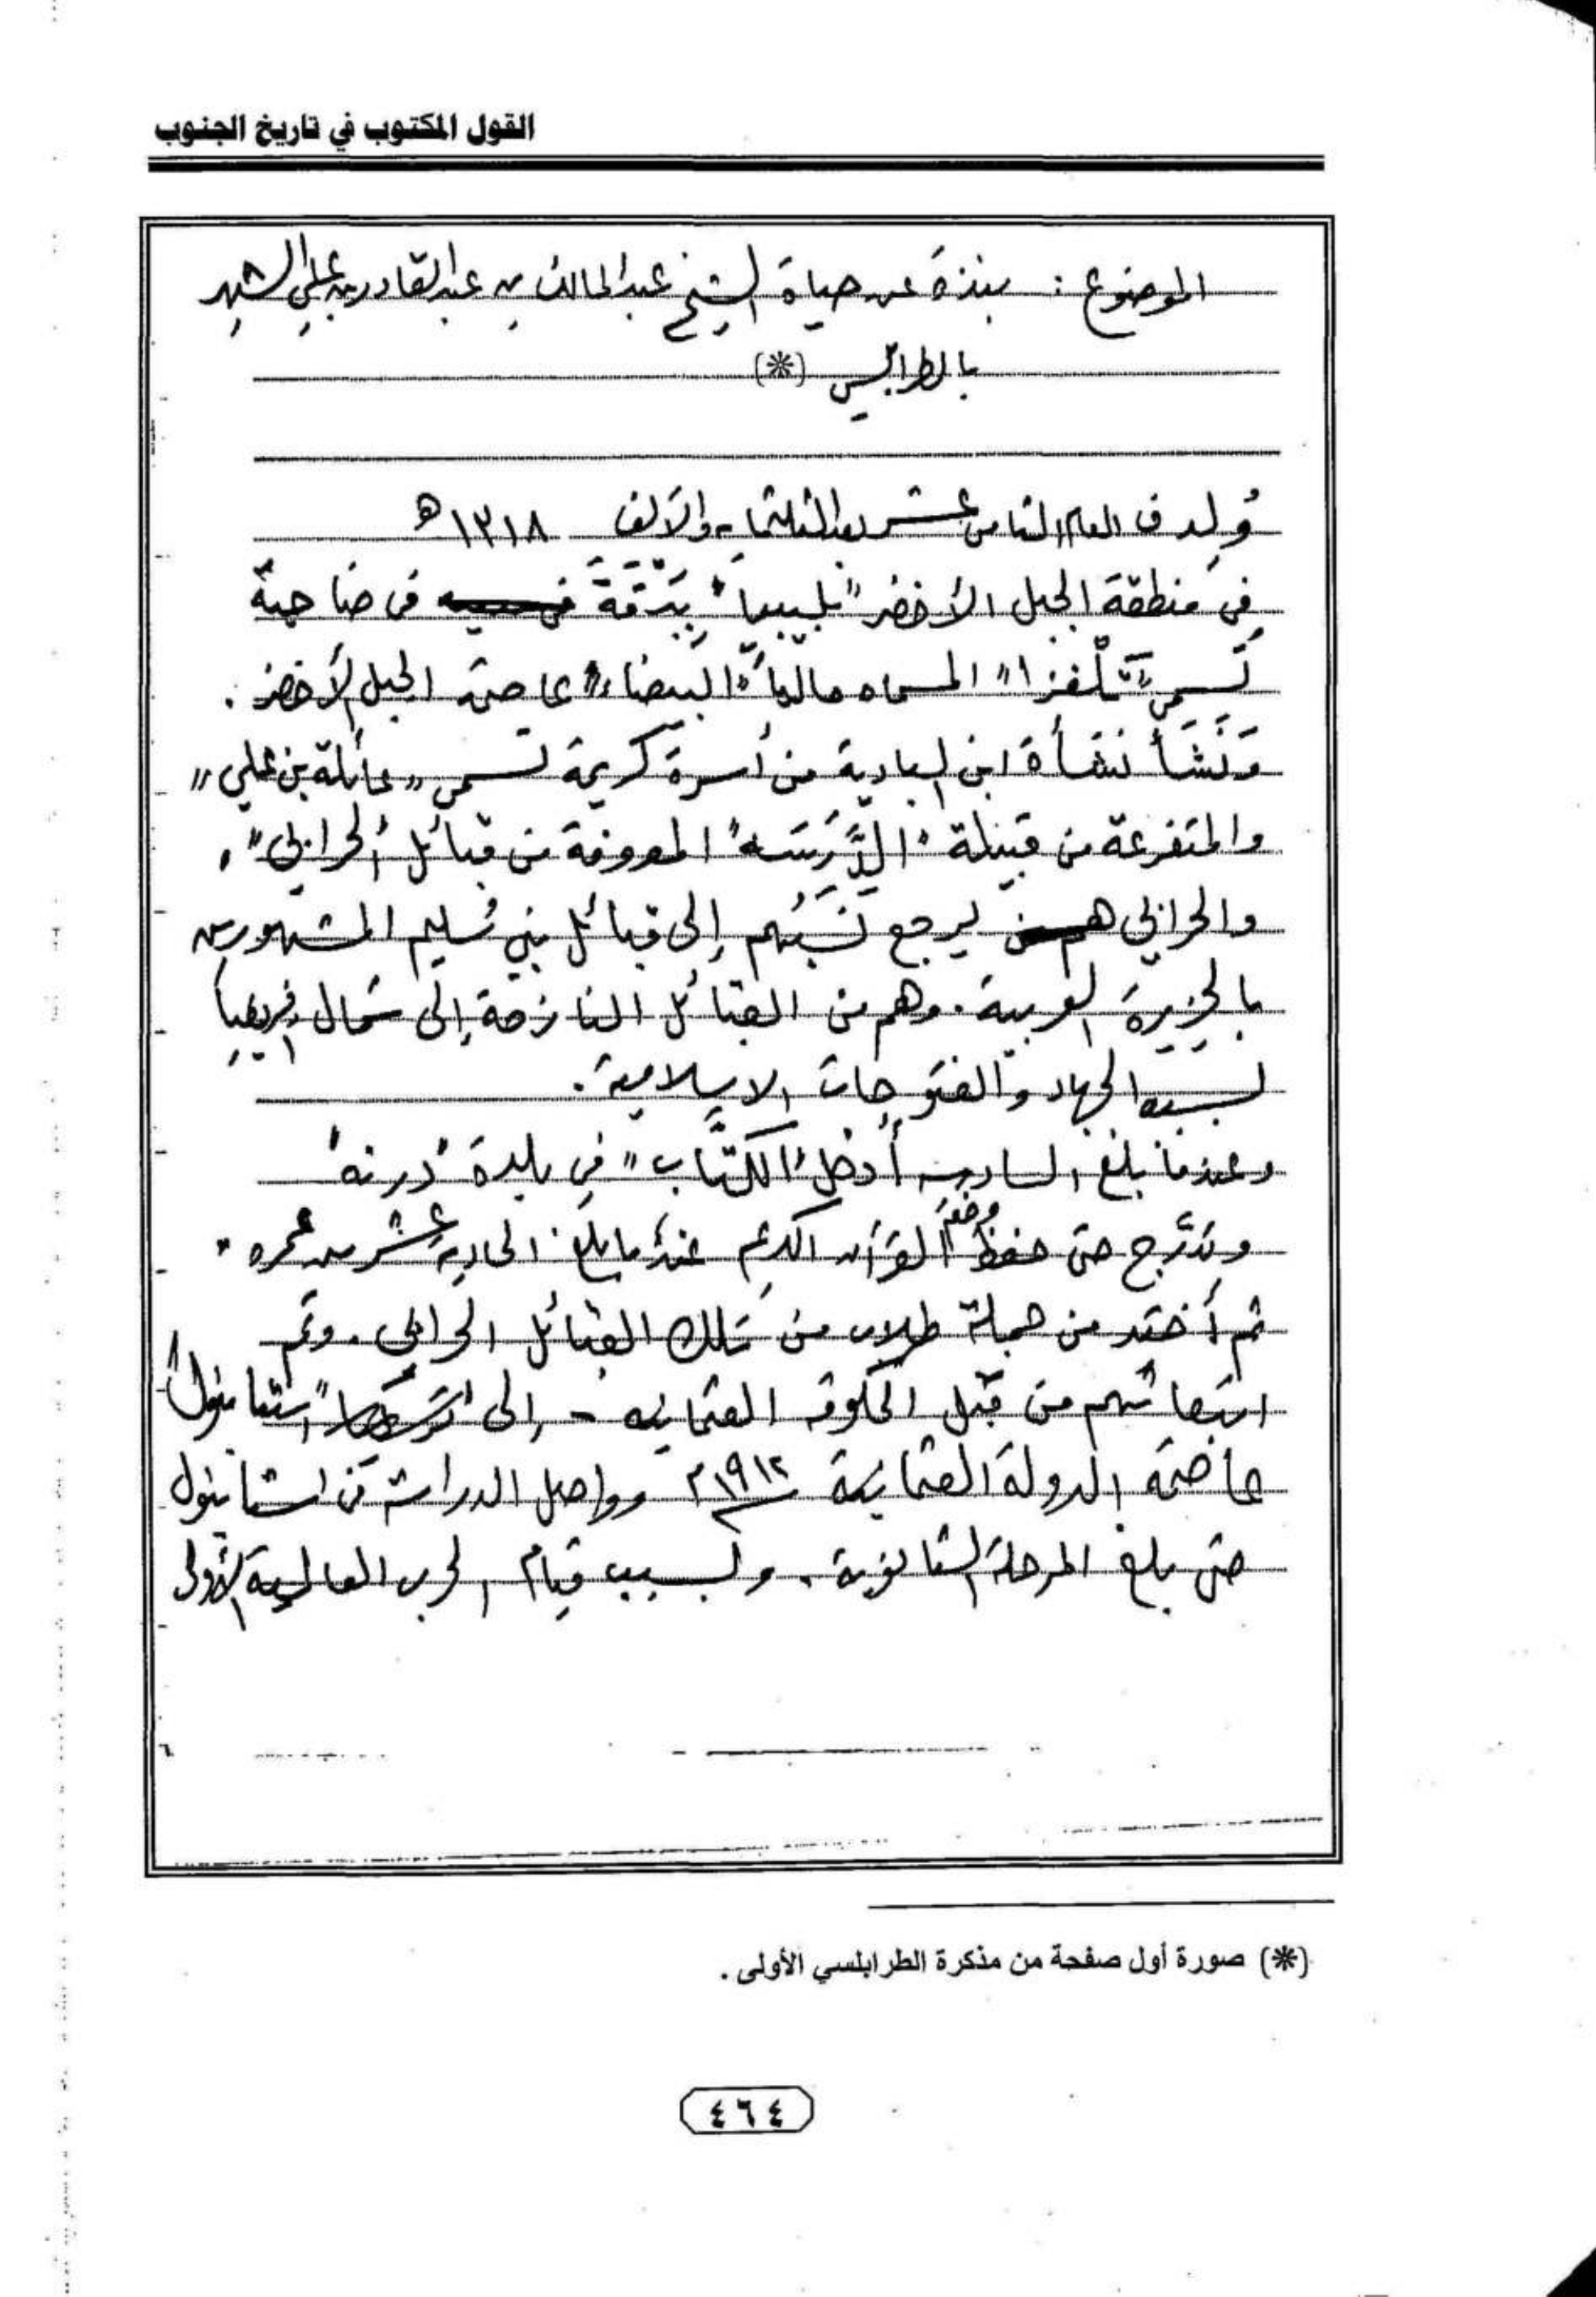 القول المكتوب في تاريخ الجنوب
الموضوع : نبذة عن حياة الشيخ عبدالمالك بن عبدالقادر بن علي الشهير
بالطرابلسي (*)
وُلِد في العام الثامن عشر بعد الثلثمايه والألف ١٣١٨ هـ
في منطقة الجبل الأخضر "بليبيا" بِبَرْقَة في ضاحية
تسمى "تَلْغزا" المسماه حالياً "البيضاء" عاصمة الجبل الأخضر .
وَنَشَأ نَشْأة ابن البادية من أسرة كريمة تسمى "عائلة بن علي"
والمتفرعة من قبيلة "الدَّرَسَه" المعروفة من قبائل "الحرابي" .
والحرابي يرجع نَسَبُهم إلى قبائل بني سُليم المشهورين
بالجزيرة العربية . وهم من القبائل النازحة إلى شمال افريقيا
بسبب الجهاد والفتوحات الاسلامية .
وعندما بلغ السادسه أُدخل "الكتَّاب" في بلدة "درنه"
وتدَّرج حتى حفظ القرآن الكريم عندما بلغ الحادية عشر من عمره .
ثم أختير من جملة طلاب من تلك القبائل الحرابي . وتم
ابتعاثهم من قبل الحكومة العثمانيه - إلى "استانبول"
عاصمة الدولة العثمانية ١٩١٢م وواصل الدراسة في استانبول
حتى بلغ المرحلة الثانوية . وبسبب قيام الحرب العالمية الأولى
(*) صورة أول صفحة من مذكرة الطرابلسي الأولى .
٤٦٤